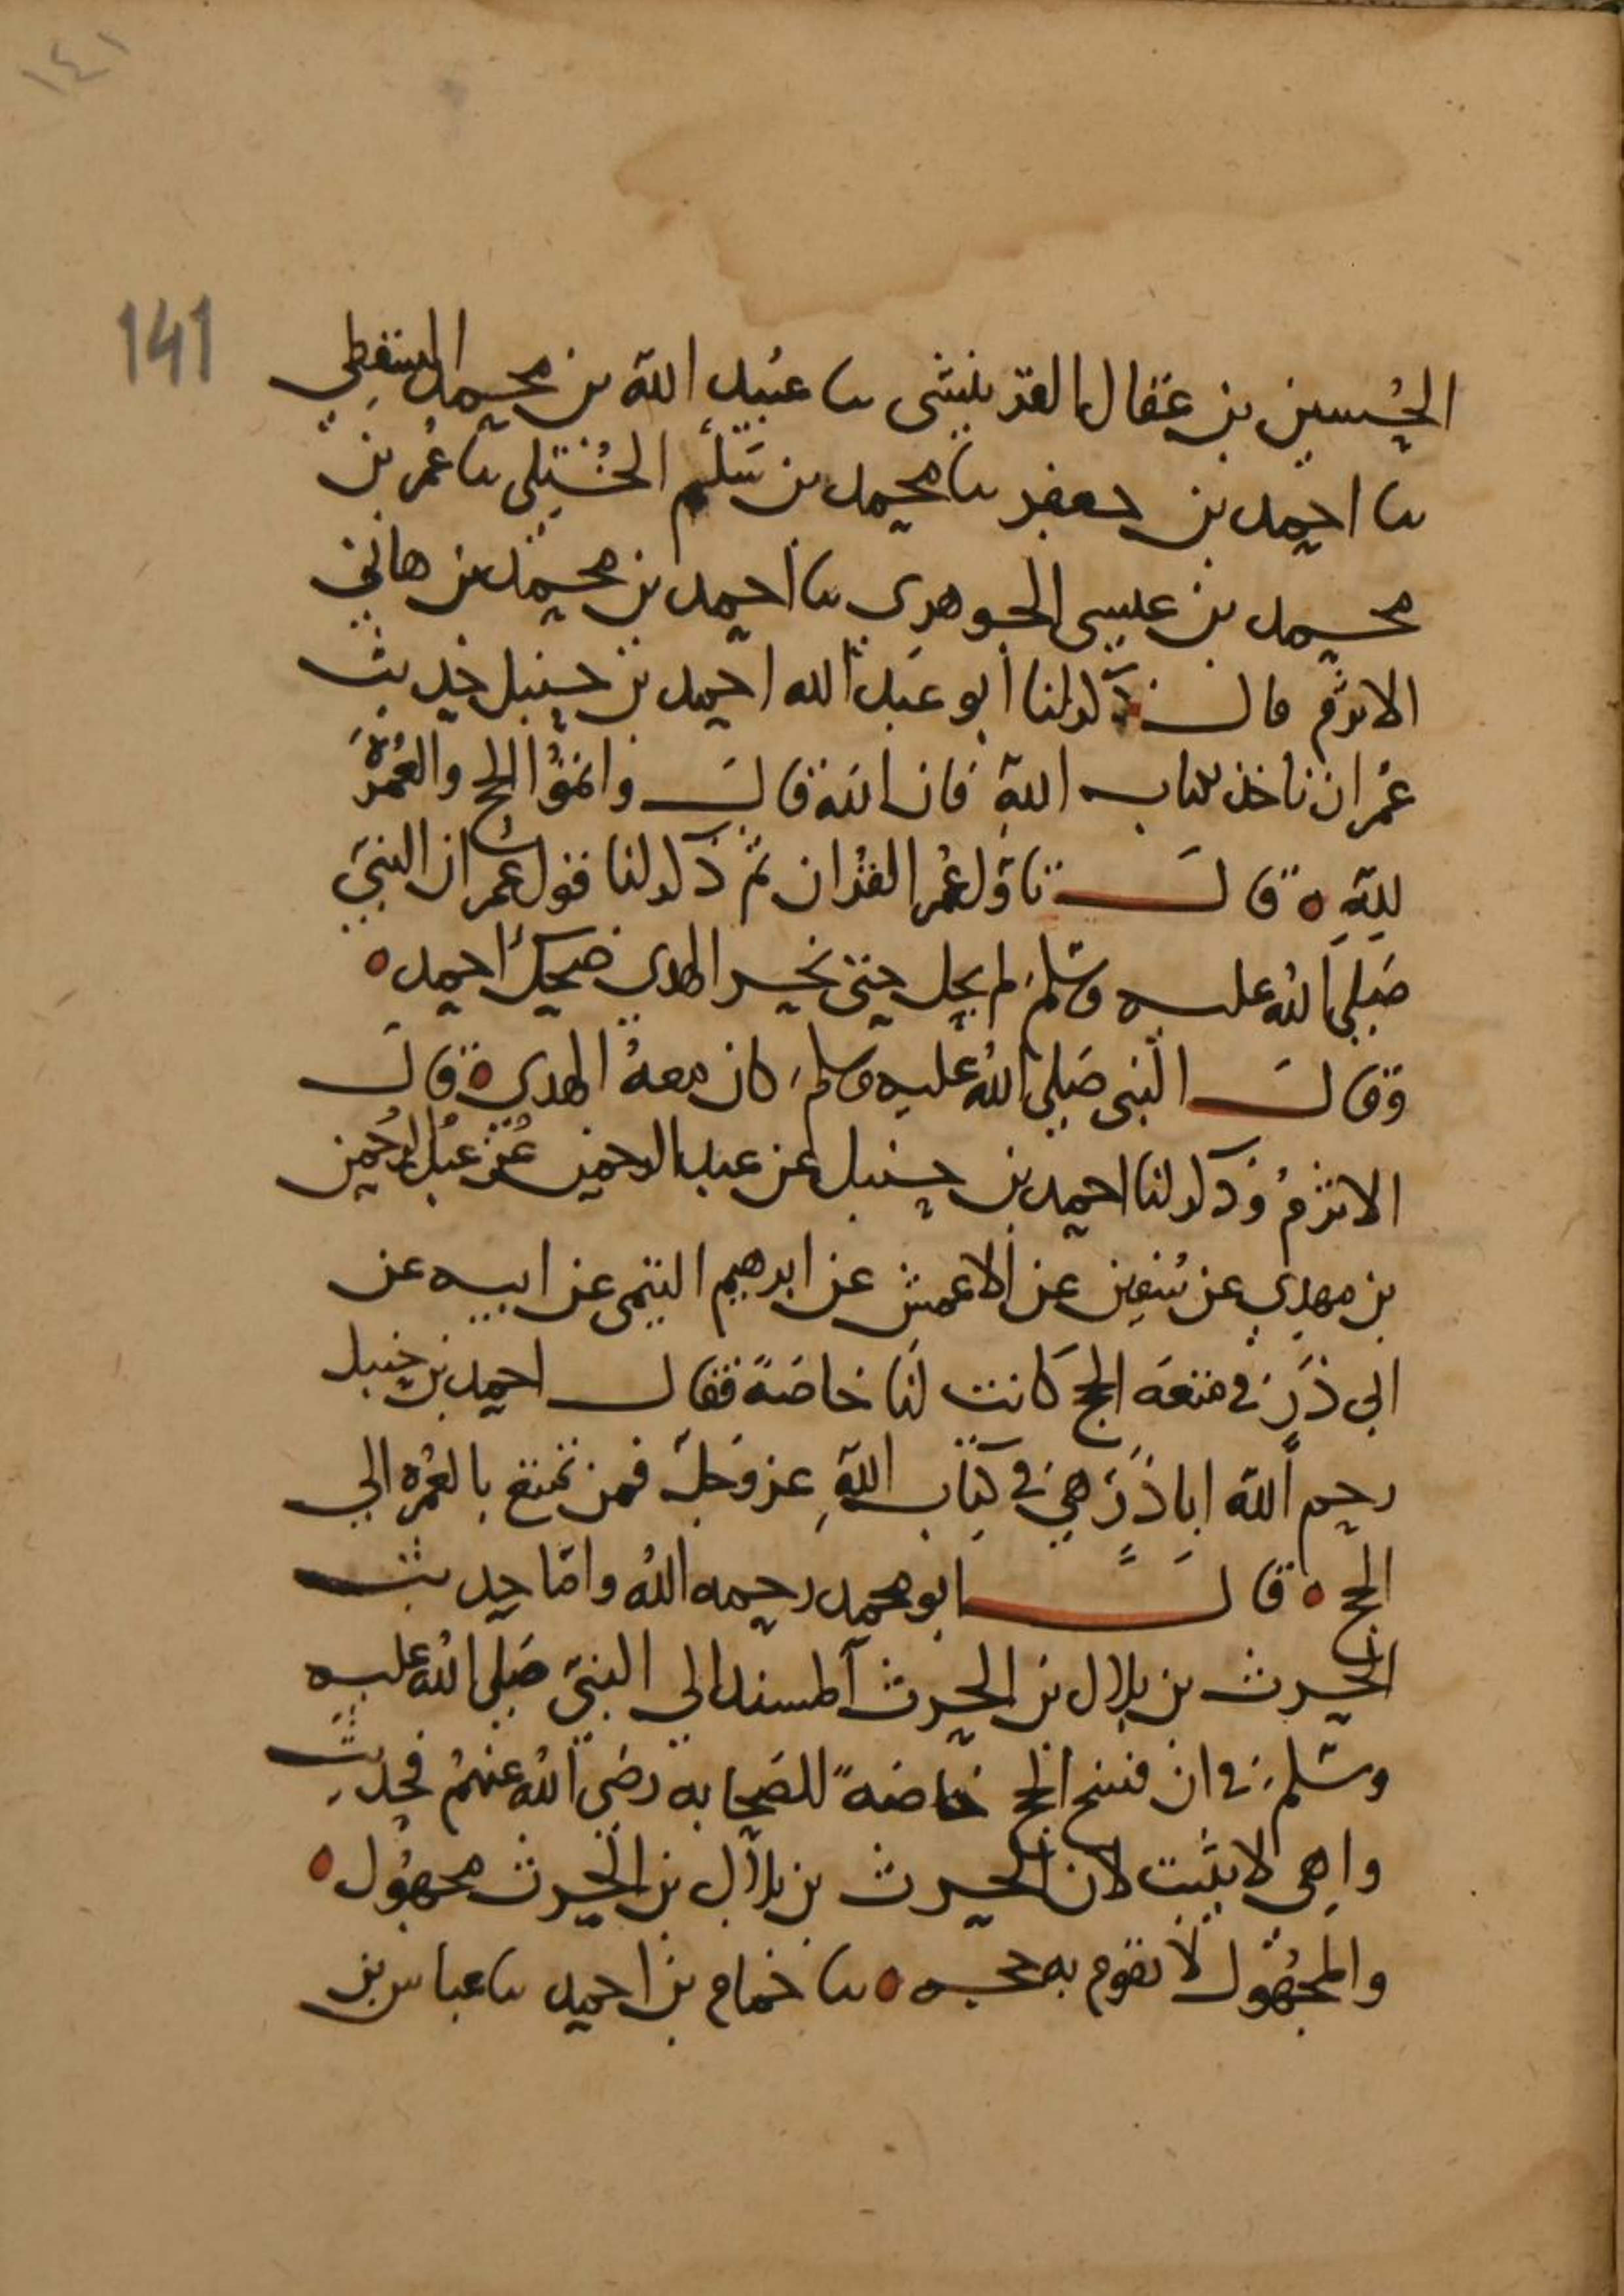 ١٤١
141
الحُسين بن عقال القرينشي نا عبيد الله بن محمد السقطي
نا احمد بن جعفر نا محمد بن سَلْم الخُتلي نا عُمر بن
محمد بن عيسى الجوهري نا احمد بن محمد بن هاني
الاثرم قال ذكر لنا ابو عبد الله احمد بن حنبل حديث
عُمر ان ناخذ بكتاب الله فان الله قال واتموُا الحج والعُمرةَ
للهِ ه قال تاوّل عُمر القُران ثم ذكر لنا قول عُمر ان النبيَّ
صَلى الله عليه وسلم لم يحل حتى نحر الهدي ضحك احمد ه
وَقال النبي صَلى اللهُ عليه وسلم كان معهُ الهدي ه قال
الاثرمُ وَذكر لنا احمد بن حنبل عن عبد الرحمن عن عبد الرحمن
بن مهدي عن سُفين عن الاعمش عن ابرهيم التيمى عن ابيه عن
ابي ذَرّ في متعَه الحج كانت لنا خاصَة فقال احمد بن حنبل
رحم الله ابا ذَرّ هي في كتاب اللهِ عز وَجلّ فمن تمتع بالعُمره الي
الحج ه قال ابو محمد رحمه اللهُ وامّا حديث
الحرث بن بلال بن الحرث المسند الي النبيّ صَلى اللهُ عليه
وسَلم في ان فسخ الحج خاصَهً للصَحابه رضي اللهُ عنهُم فحديث
واهي لا يثبت لان الحرث بن بلال بن الحرث مجهُول ه
والمجهُول لا تقوم به حجه ه نا حُمام بن احمد نا عباس بن